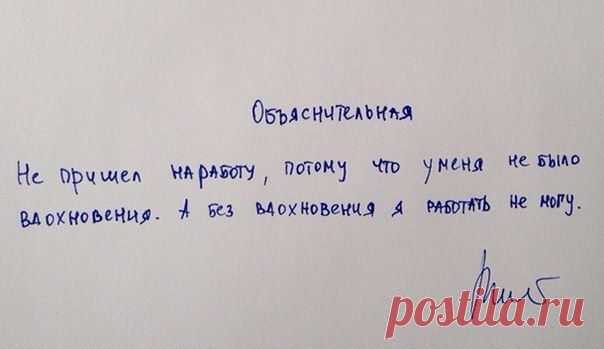 Объяснительная
Не пришел на работу, потому что у меня не было
вдохновения. А без вдохновения я работать не могу.
postila.ru